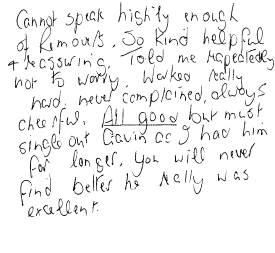 Cannot speak highly enough
of Removers. So kind helpful
+ reassuring, Told me repeatedly
not to worry. Worked really
hard. never complained, always
cheerful. All good but must
single out Gavin as I had him
for longer, you will never
find better he really was
excellent.